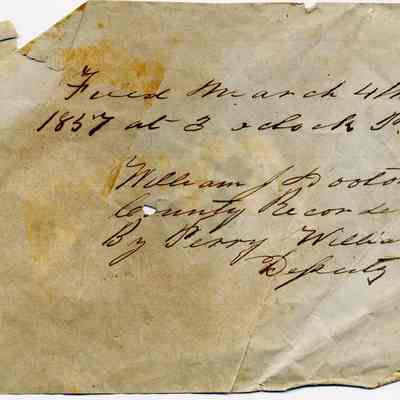 Filed March 4th
1857 at 3 oclock P
William J Dooto
County Recorde
By Perry Willia
Deputy